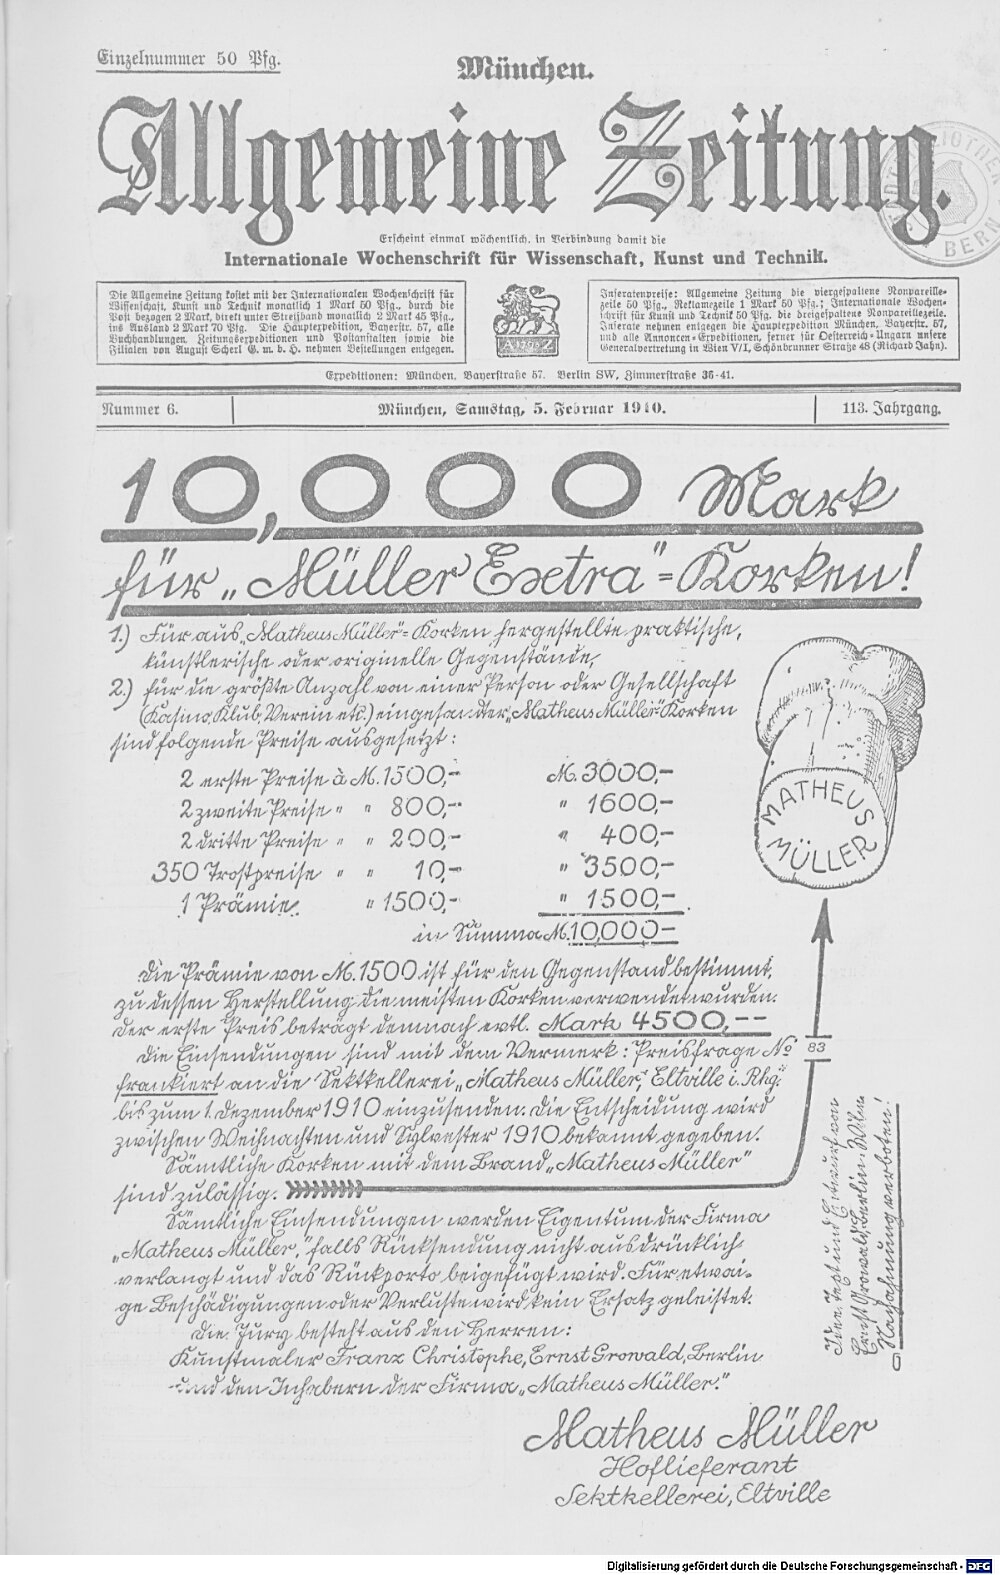 Einzelnummer 50 Pfg.
München.
Allgemeine Zeitung.
Erscheint einmal wöchentlich, in Verbindung damit die
Internationale Wochenschrift für Wissenschaft, Kunst und Technik.
Die Allgemeine Zeitung kostet mit der Internationalen Wochenschrift für
Wissenschaft, Kunst und Technik monatlich 1 Mark 50 Pfg., durch die
Post bezogen 2 Mark, direkt unter Streifband monatlich 2 Mark 45 Pfg.,
ins Ausland 2 Mark 70 Pfg. Die Hauptexpedition, Bayerstr. 57, alle
Buchhandlungen, Zeitungsexpeditionen und Postanstalten sowie die
Filialen von August Scherl G. m. b. H. nehmen Bestellungen entgegen.
A 1798 Z
Inseratenpreise: Allgemeine Zeitung die viergespaltene Nonpareille-
zeile 50 Pfg., Reklamezeile 1 Mark 50 Pfg.; Internationale Wochen-
schrift für Kunst und Technik 50 Pfg. die dreigespaltene Nonpareillezeile.
Inserate nehmen entgegen die Hauptexpedition München, Bayerstr. 57,
und alle Annoncen-Expeditionen, ferner für Oesterreich-Ungarn unsere
Generalvertretung in Wien V/I, Schönbrunner Straße 48 (Richard Jahn).
Expeditionen: München, Bayerstraße 57. Berlin SW, Zimmerstraße 36-41.
Nummer 6.
München, Samstag, 5. Februar 1910.
113. Jahrgang.
10,000 Mark
für „Müller Extra"=Korken!
1.) Für aus „Matheus Müller"=Korken hergestellte praktische,
künstlerische oder originelle Gegenstände,
2.) für die größte Anzahl von einer Person oder Gesellschaft
(Kasino, Klub, Verein etc.) eingesandter „Matheus Müller"=Korken
sind folgende Preise ausgesetzt:
2 erste Preise à M. 1500,- M. 3000,-
2 zweite Preise " " 800,- " 1600,-
2 dritte Preise " " 200,- " 400,-
350 Trostpreise " " 10,- " 3500,-
1 Prämie " 1500,- " 1500,-
in Summa M. 10,000-
MATHEUS
MÜLLER
Die Prämie von M. 1500 ist für den Gegenstand bestimmt,
zu dessen Herstellung die meisten Korken verwendet wurden.
Der erste Preis beträgt demnach evtl. Mark 4500,--
Die Einsendungen sind mit dem Vermerk: Preisfrage No 83
frankiert an die Sektkellerei „Matheus Müller," Eltville i. Rhg."
bis zum 1. Dezember 1910 einzusenden. Die Entscheidung wird
zwischen Weihnachten und Sylvester 1910 bekannt gegeben.
Sämtliche Korken mit dem Brand „Matheus Müller"
sind zulässig.
Sämtliche Einsendungen werden Eigentum der Firma
„Matheus Müller," falls Rücksendung nicht ausdrücklich
verlangt und das Rückporto beigefügt wird. Für etwai-
ge Beschädigungen oder Verluste wird kein Ersatz geleistet.
Die Jury besteht aus den Herren:
Kunstmaler Franz Christophe, Ernst Growald, Berlin
und den Inhabern der Firma „Matheus Müller."
Idee, Text und Entwurf von
Ernst Growald, Berlin-Wilm.
Nachahmung verboten!
Matheus Müller
Hoflieferant
Sektkellerei, Eltville
Digitalisierung gefördert durch die Deutsche Forschungsgemeinschaft - DFG